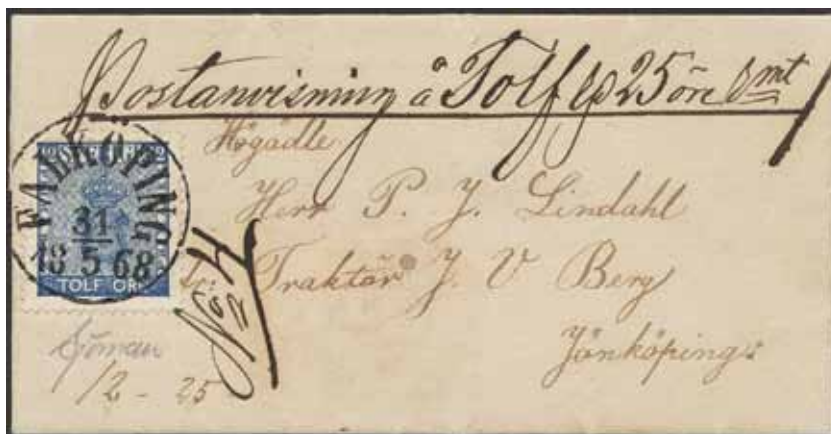 Postanvisning å Tolf rd 25 öre rmt
Högädle
Herr P. J. Lindahl
Traktör J. V Berg
Jönköping
No 4
FALKÖPING
31
18 5 68
TOLF ÖRE
12 - 25